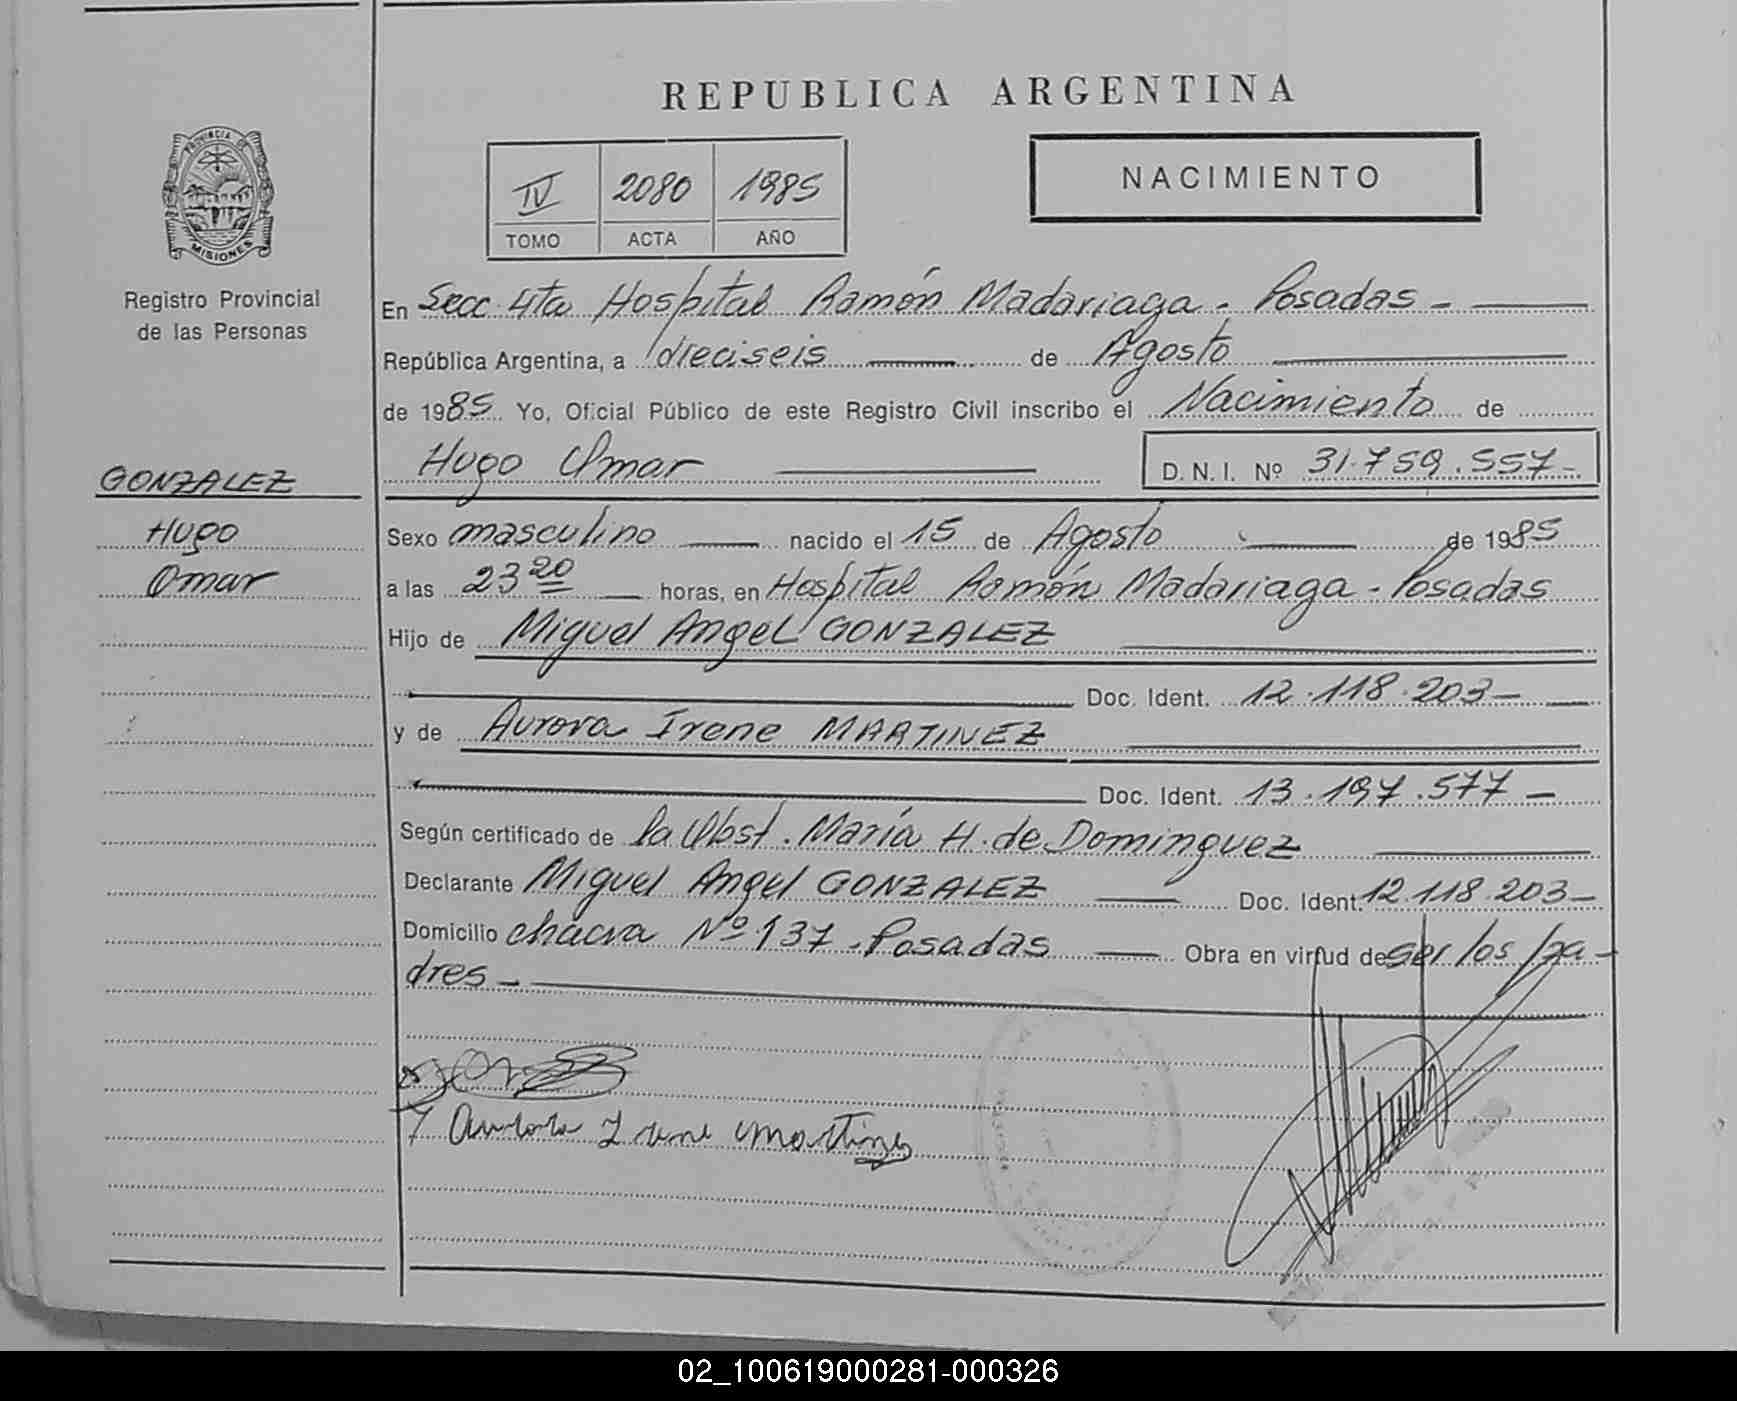 REPUBLICA ARGENTINA
PROVINCIA DE
MISIONES
Registro Provincial
de las Personas
IV 2080 1985
TOMO ACTA AÑO
NACIMIENTO
En Secc. 4ta Hospital Ramón Madariaga - Posadas -
República Argentina, a dieciseis de Agosto
de 1985 Yo, Oficial Público de este Registro Civil inscribo el Nacimiento de
Hugo Omar D. N. I. Nº 31.759.557-
GONZALEZ
Hugo
Omar
Sexo masculino nacido el 15 de Agosto de 1985
a las 23 20 horas, en Hospital Ramón Madariaga - Posadas
Hijo de Miguel Angel GONZALEZ
Doc. Ident. 12.118.203-
y de Aurora Irene MARTINEZ
Doc. Ident. 13.197.577-
Según certificado de la Obst. María H. de Dominguez
Declarante Miguel Angel GONZALEZ Doc. Ident. 12.118.203-
Domicilio chacra Nº 137 - Posadas Obra en virtud de ser los pa-
dres -
Aurora Irene Martinez
02_100619000281-000326